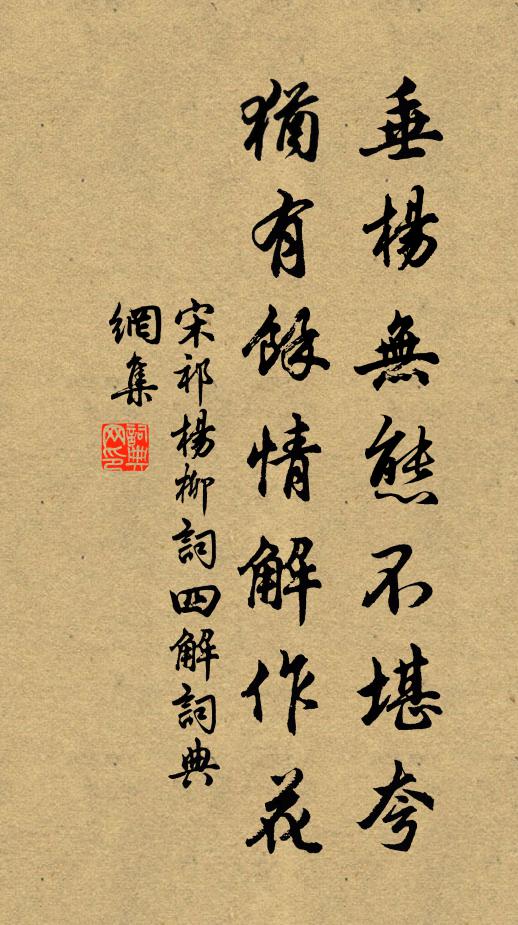 垂楊無態不堪夸
猶有餘情解作花
宋祁楊柳詞四解詞典
網集
詞典
网印